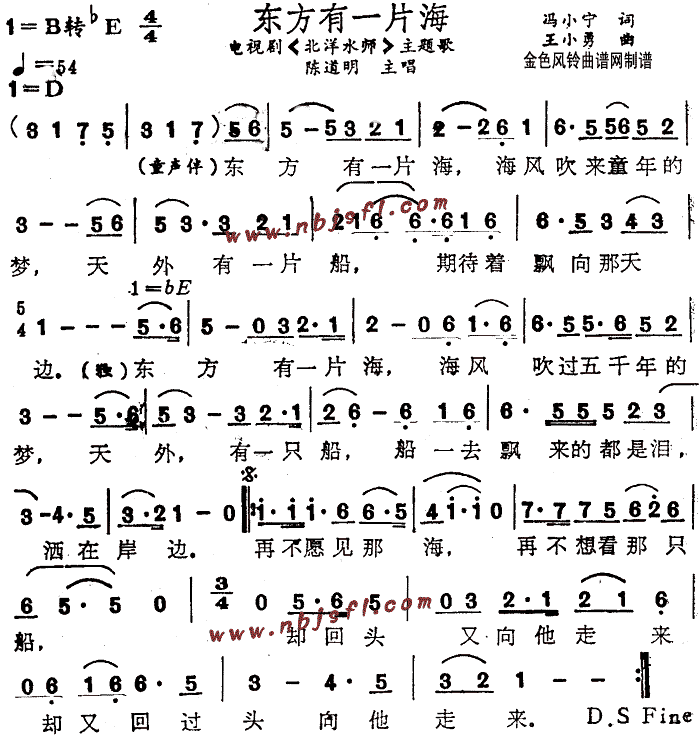 东方有一片海
1=B转♭E 4/4
电视剧《北洋水师》主题歌
冯小宁 词
王小勇 曲
♩=54
陈道明 主唱
金色风铃曲谱网制谱
1=D
(3 1 7 5 | 3 1 7) 5 6 | 5 - 5 3 2 1 | 2 - 2 6 1 | 6· 5 5 6 5 2 |
(童声伴) 东 方 有一片 海, 海风吹来童年的
3 - - 5 6 | 5 3· 3 2 1 | 2 1 6 6· 6 1 6 | 6· 5 3 4 3 |
www.nbjsfl.com
梦, 天 外 有一片 船, 期待着 飘向那天
1=bE
5/4 1 - - - 5·6 | 5 - 0 3 2·1 | 2 - 0 6 1·6 | 6· 5 5·6 5 2 |
边. (独) 东 方 有一片海, 海风 吹过五千年的
3 - - 5·6 | 5 3 - 3 2·1 | 2 6 - 6 1 6 | 6· 5 5 5 2 3 |
梦, 天 外, 有一只 船, 船 一去飘 来的都是泪,
3 - 4· 5 | 3·2 1 - 0 | 1· 1 1· 6 6·5 | 4 1 - 1 0 | 7· 7 7 5 6 2 6 |
洒在岸 边. 再不愿见那 海, 再不想看那只
6 5· 5 5 0 | 3/4 0 5·6 5 | 0 3 2·1 2 1 6 |
www.nbjsfl.com
船, 却回头 又向他走 来
0 6 1 6 6· 5 | 3 - 4· 5 | 3 2 1 - - :|
却又回过 头 向他 走 来. D.S Fine